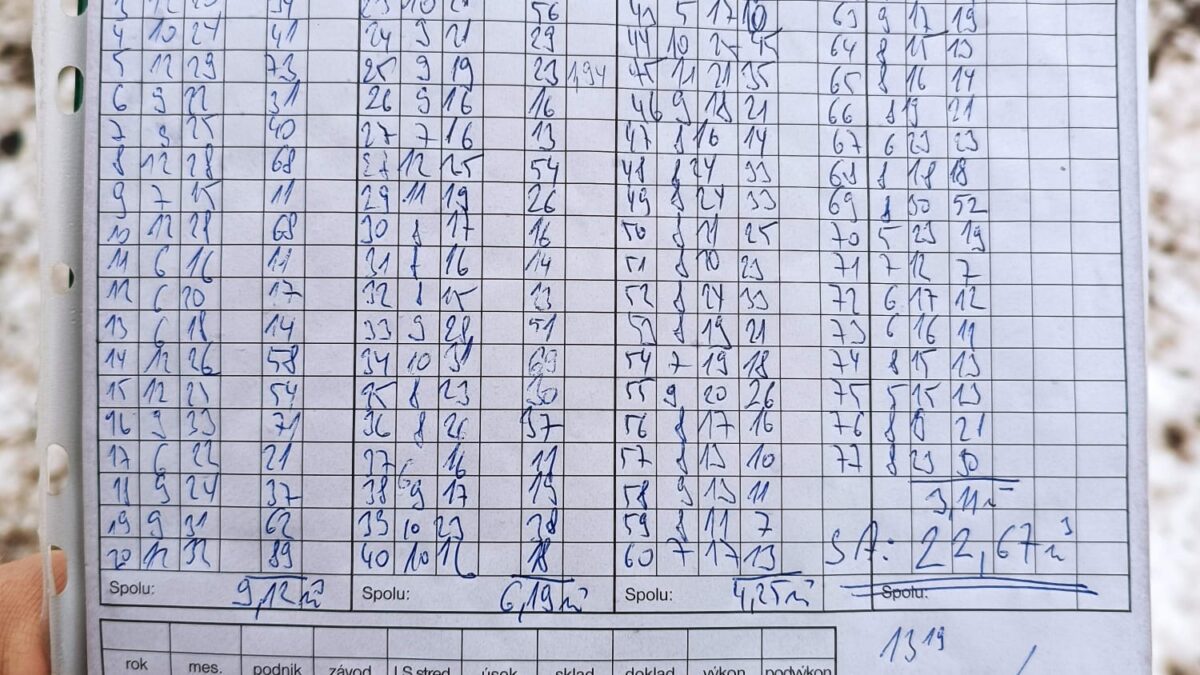 3 12 20 34 23 10 21 56 43 5 17 10 63 9 17 19
4 10 24 41 24 9 21 29 44 10 25 45 64 8 15 13
5 12 29 73 25 9 19 23 1,94 45 11 21 35 65 8 16 14
6 9 22 31 26 9 16 16 46 9 18 21 66 8 19 21
7 9 25 40 27 7 16 13 47 8 16 14 67 6 23 23
8 12 28 68 12 25 54 48 8 24 33 68 8 18 18
9 7 15 11 29 11 19 26 49 8 24 33 69 8 30 52
10 12 28 68 30 8 17 16 50 8 21 25 70 5 23 19
11 6 16 11 31 7 16 14 51 8 20 23 71 7 12 7
12 6 20 17 32 8 15 13 52 8 24 33 72 6 17 12
13 6 18 14 33 9 28 51 53 8 19 21 73 6 16 11
14 12 26 58 34 10 31 69 54 7 19 18 74 8 15 13
15 12 25 54 35 8 23 30 55 9 20 26 75 5 15 13
16 9 33 71 36 8 26 37 56 8 17 16 76 8 19 21
17 6 22 21 37 6 16 11 57 8 13 10 77 8 23 30
18 9 24 37 38 9 17 19 58 9 13 11 3,11 m³
19 9 31 62 39 10 23 38 59 8 11 7
20 12 32 89 40 10 16 18 60 7 17 13 SA: 22,67 m³
Spolu: 9,12 m³ Spolu: 6,19 m³ Spolu: 4,25 m³ Spolu:
13 19
rok mes. podnik závod LS stred. úsek sklad doklad výkon podvýkon